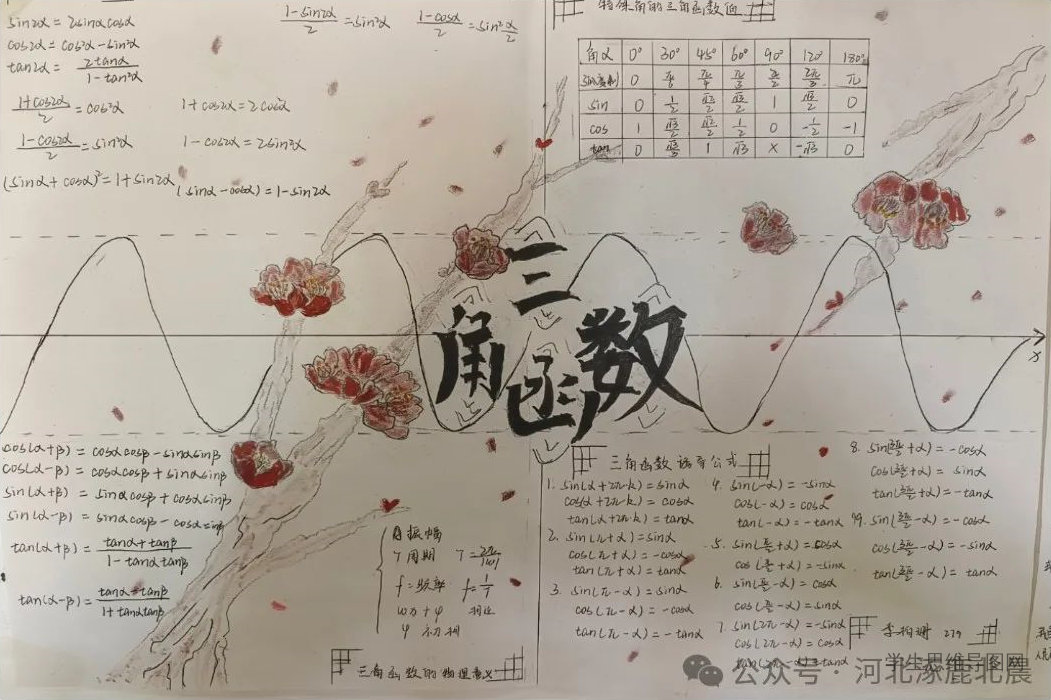 sin2α = 2sinαcosα
cos2α = cos²α - sin²α
tan2α = 2tanα / 1-tan²α
1+cos2α / 2 = cos²α
1+cos2α = 2cos²α
1-cos2α / 2 = sin²α
1-cos2α = 2sin²α
(sinα+cosα)² = 1+sin2α
(sinα-cosα) = 1-sin2α
1-sin2α / 2 = sin²α
1-cosα / 2 = sin²α/2
特殊角的三角函数值
角α 0° 30° 45° 60° 90° 120° 180°
0 π/6 π/4 π/3 π/2 2π/3 π
sin 0 1/2 √2/2 √3/2 1 √3/2 0
cos 1 √3/2 √2/2 1/2 0 -1/2 -1
tan 0 √3/3 1 √3 × -√3 0
三
角函数
x
cos(α+β) = cosαcosβ - sinαsinβ
cos(α-β) = cosαcosβ + sinαsinβ
sin(α+β) = sinαcosβ + cosαsinβ
sin(α-β) = sinαcosβ - cosαsinβ
tan(α+β) = tanα+tanβ / 1-tanαtanβ
tan(α-β) = tanα-tanβ / 1+tanαtanβ
振幅
T 周期 T = 2π/|ω|
f = 频率 f = 1/T
ωx+φ 相位
φ 初相
三角函数的物理意义
三角函数诱导公式
1. sin(α+2π·k) = sinα
cos(α+2π·k) = cosα
tan(α+2π·k) = tanα
2. sin(π+α) = sinα
cos(π+α) = -cosα
tan(π+α) = tanα
3. sin(π-α) = sinα
cos(π-α) = -cosα
tan(π-α) = -tanα
4. sin(-α) = -sinα
cos(-α) = cosα
tan(-α) = -tanα
5. sin(π/2+α) = cosα
cos(π/2+α) = -sinα
6. sin(π/2-α) = cosα
cos(π/2-α) = sinα
7. sin(2π-α) = -sinα
cos(2π-α) = cosα
tan(2π-α) = -tanα
8. sin(3π/2+α) = -cosα
cos(3π/2+α) = sinα
tan(3π/2+α) = -tanα
9. sin(3π/2-α) = -cosα
cos(3π/2-α) = -sinα
tan(3π/2-α) = tanα
279
学生思维导图网
公众号 · 河北涿鹿北晨